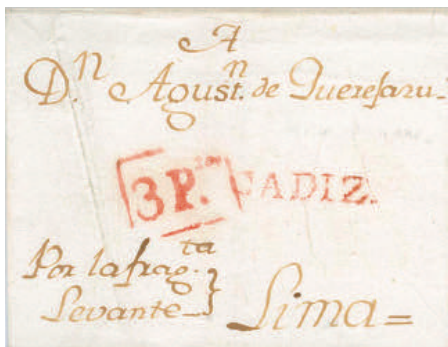 A
D.n Agust.n de Querejaru-
3P.s CADIZ.
Por la frag.ta
Levante_} Lima=